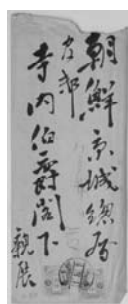 朝鮮京城総督
官邸
寺内伯爵閣下
親展